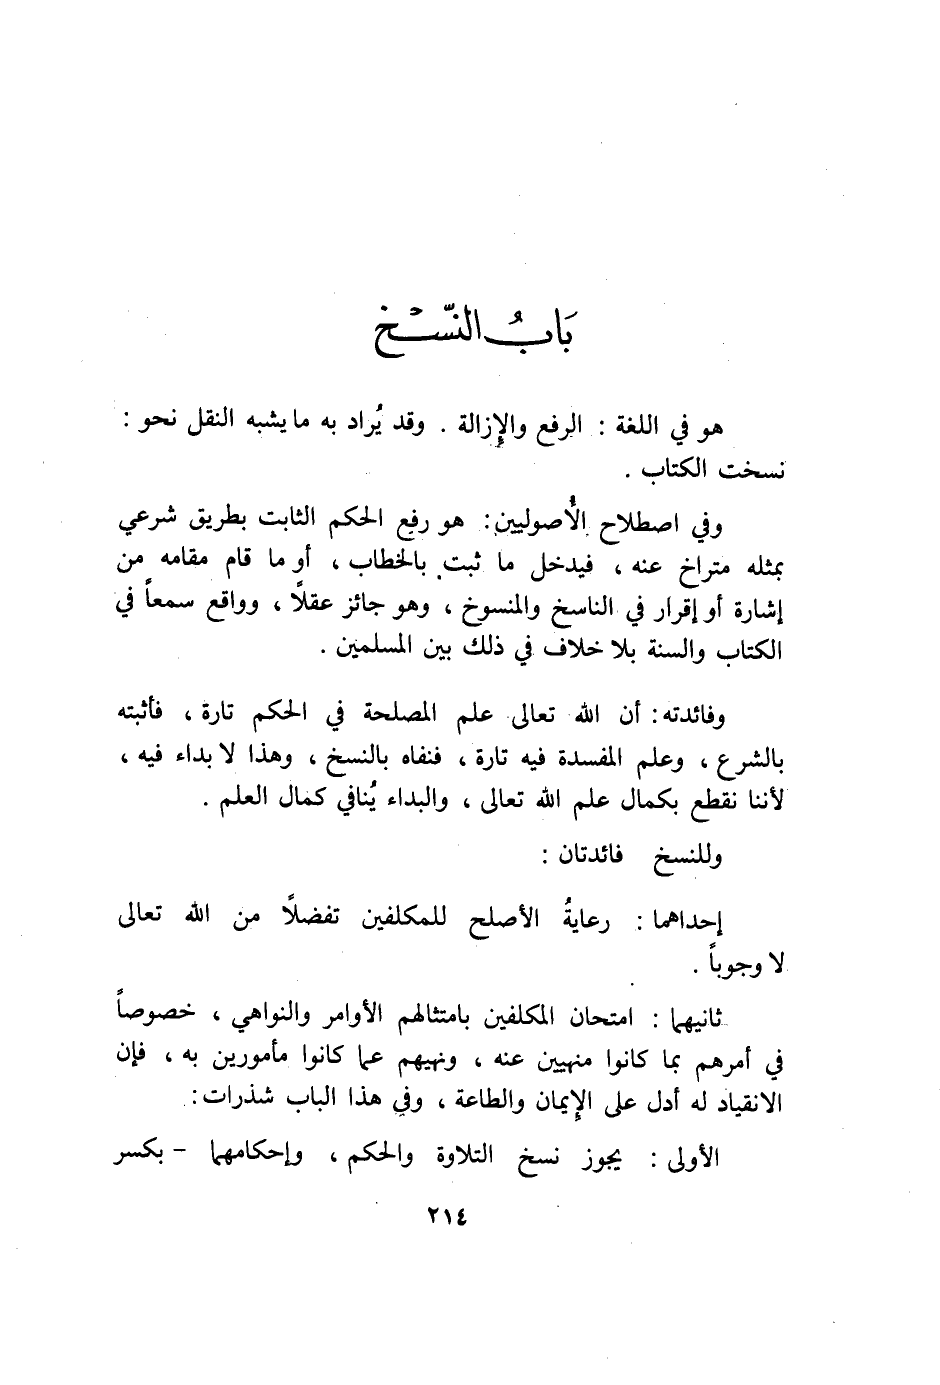 بَابُ النَّسْخ
هو في اللغة : الرفع والإِزالة . وقد يُراد به ما يشبه النقل نحو :
نسخت الكتاب .
وفي اصطلاح الأُصوليين : هو رفع الحكم الثابت بطريق شرعي
بمثله متراخ عنه ، فيدخل ما ثبت بالخطاب ، أو ما قام مقامه من
إشارة أو إقرار في الناسخ والمنسوخ ، وهو جائز عقلاً ، وواقع سمعاً في
الكتاب والسنة بلا خلاف في ذلك بين المسلمين .
وفائدته : أن الله تعالى علم المصلحة في الحكم تارة ، فأثبته
بالشرع ، وعلم المفسدة فيه تارة ، فنفاه بالنسخ ، وهذا لا بداء فيه ،
لأننا نقطع بكمال علم الله تعالى ، والبداء يُنافي كمال العلم .
وللنسخ فائدتان :
إحداهما : رعايةُ الأصلح للمكلفين تفضلاً من الله تعالى
لا وجوباً .
ثانيهما : امتحان المكلفين بامتثالهم الأوامر والنواهي ، خصوصاً
في أمرهم بما كانوا منهيين عنه ، ونهيهم عما كانوا مأمورين به ، فإن
الانقياد له أدل على الإِيمان والطاعة ، وفي هذا الباب شذرات :
الأولى : يجوز نسخ التلاوة والحكم ، وإحكامهما – بكسر
٢١٤